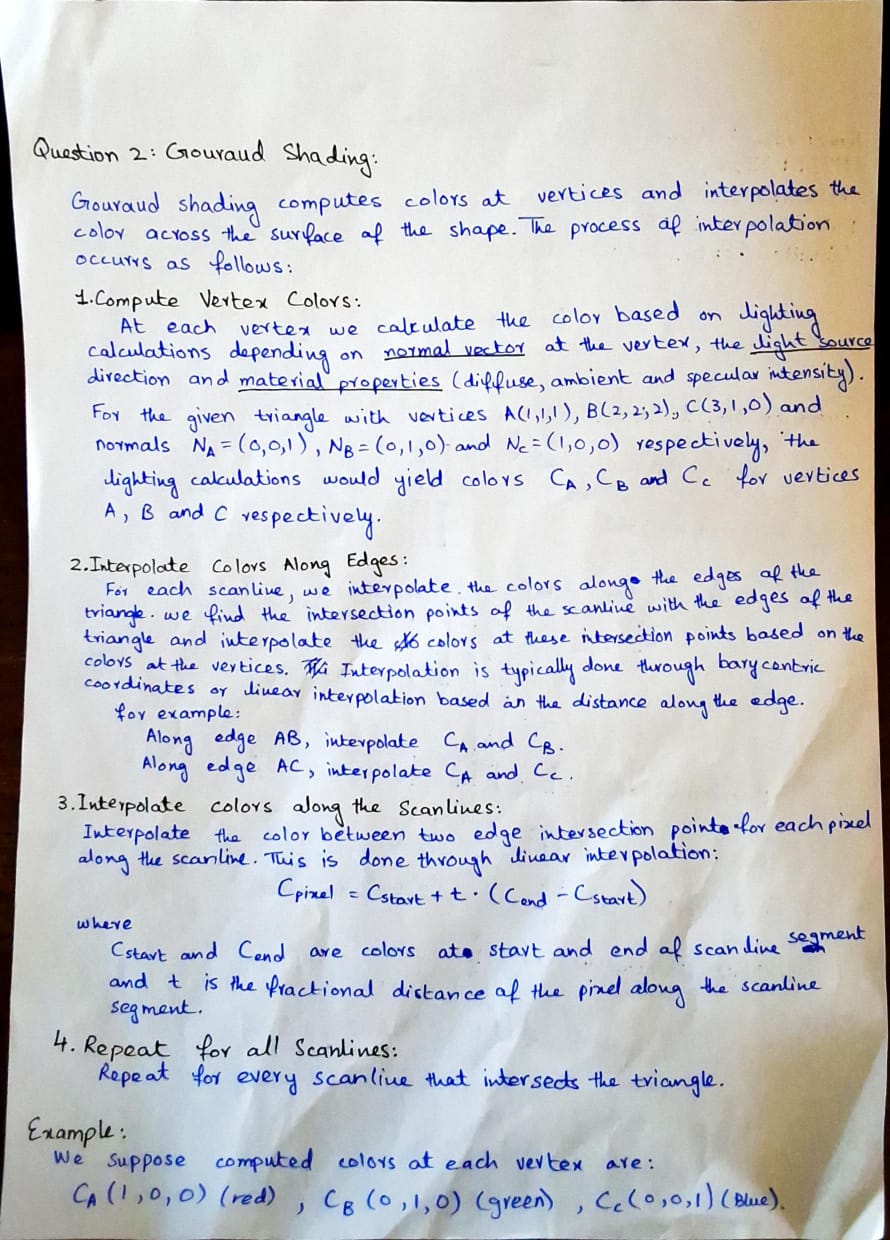 Question 2: Gouraud Shading:
Gouraud shading computes colors at vertices and interpolates the
color across the surface of the shape. The process of interpolation
occurrs as follows:
1.Compute Vertex Colors:
At each vertex we calculate the color based on lighting
calculations depending on normal vector at the vertex, the light source
direction and material properties (diffuse, ambient and specular intensity).
For the given triangle with vertices A(1,1,1), B(2,2,2), C(3,1,0) and
normals NA = (0,0,1), NB = (0,1,0) and Nc = (1,0,0) respectively, the
lighting calculations would yield colors CA, CB and Cc for vertices
A, B and C respectively.
2.Interpolate Colors Along Edges:
For each scanline, we interpolate the colors along the edges of the
triangle. we find the intersection points of the scanline with the edges of the
triangle and interpolate the colors at these intersection points based on the
colors at the vertices. Interpolation is typically done through barycentric
coordinates or linear interpolation based on the distance along the edge.
for example:
Along edge AB, interpolate CA and CB.
Along edge AC, interpolate CA and Cc.
3.Interpolate colors along the Scanlines:
Interpolate the color between two edge intersection points for each pixel
along the scanline. This is done through linear interpolation:
Cpixel = Cstart + t · (Cend - Cstart)
where
Cstart and Cend are colors at start and end of scanline segment
and t is the fractional distance of the pixel along the scanline
segment.
4. Repeat for all Scanlines:
Repeat for every scanline that intersects the triangle.
Example:
We suppose computed colors at each vertex are:
CA (1,0,0) (red), CB (0,1,0) (green), Cc(0,0,1) (Blue).